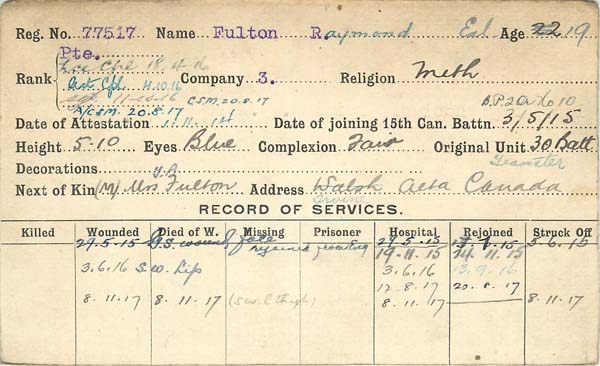 Reg. No. 77517 Name Fulton Raymond Age 22 19
Pte.
Lce Cpl 18.4.16
Rank Act Cpl 11.10.16 Company 3. Religion Meth
Sgt. 11-10-16 C.S.M. 20.8.17
A/CSM. 20.8.17
Date of Attestation Date of joining 15th Can. Battn. 3/5/15
Height 5-10 Eyes Blue Complexion Fair Original Unit 30 Batt
Teamster
Decorations
Next of Kin (M) Mrs Fulton Address Walsh Alta Canada
Irvine
RECORD OF SERVICES.
Killed Wounded Died of W. Missing Prisoner Hospital Rejoined Struck Off
29.5.15 G.S. wound face 29.5.15 5.6.15
rejoined from Eng 19.11.15 14.11.15
3.6.16 S.W. Hip 3.6.16 13.9.16
12.8.17 20.8.17
8.11.17 8.11.17 (S.W. L thigh) 8.11.17 8.11.17